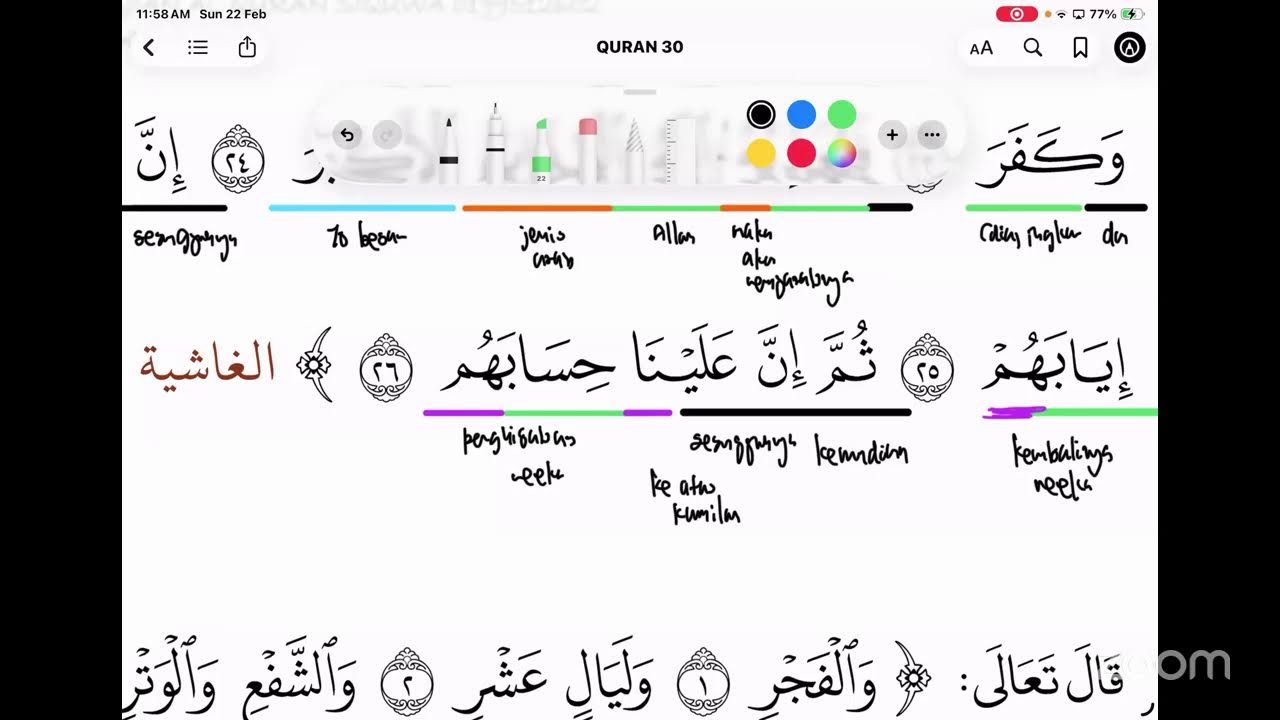 11:58 AM Sun 22 Feb 77%
QURAN 30
AA
22
وَكَفَرَ ٢٤ إِنَّ
dan jenis Allah maka
sesungguhnya
aku
إِيَابَهُمْ ٢٥ ثُمَّ إِنَّ عَلَيْنَا حِسَابَهُم ٢٦ ﴾ الغاشية
kembalinya kemudian sesungguhnya
mereka ke atas mereka
kamilah
قَالَ تَعَالَى: ﴿ وَٱلْفَجْرِ ١ وَلَيَالٍ عَشْرٍ ٢ وَٱلشَّفْعِ وَٱلْوَتْرِ
zoom